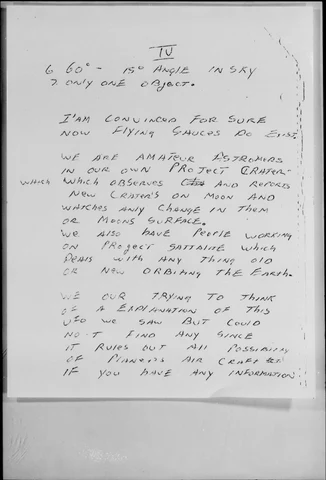 IV
6 60° - 15° ANGLE IN SKY
7 ONLY ONE OBJECT.
I'AM CONVINCED FOR SURE
NOW FLYING SAUCES DO EXIST.
WE ARE AMATEUR ESTROMERS
IN OUR OWN PROJECT CRATER
WHICH WHICH OBSERVES AND REPORTS
NEW CRATER'S ON MOON AND
WATCHES ANY CHANGE IN THEM
OR MOONS SURFACE.
WE ALSO HAVE PEOPLE WORKING
ON PROJECT SATTALITE WHICH
DEALS WITH ANY THING OLD
OR NEW ORBITANG THE EARTH.
WE OUR TRYING TO THINK
OF A EXPLANATION OF THIS
UFO WE SAW BUT COULD
NOT FIND ANY SINCE
IT RULES OUT ALL POSSIBILITY
OF PLANETS AIR CRAFT
IF YOU HAVE ANY INFORMATION